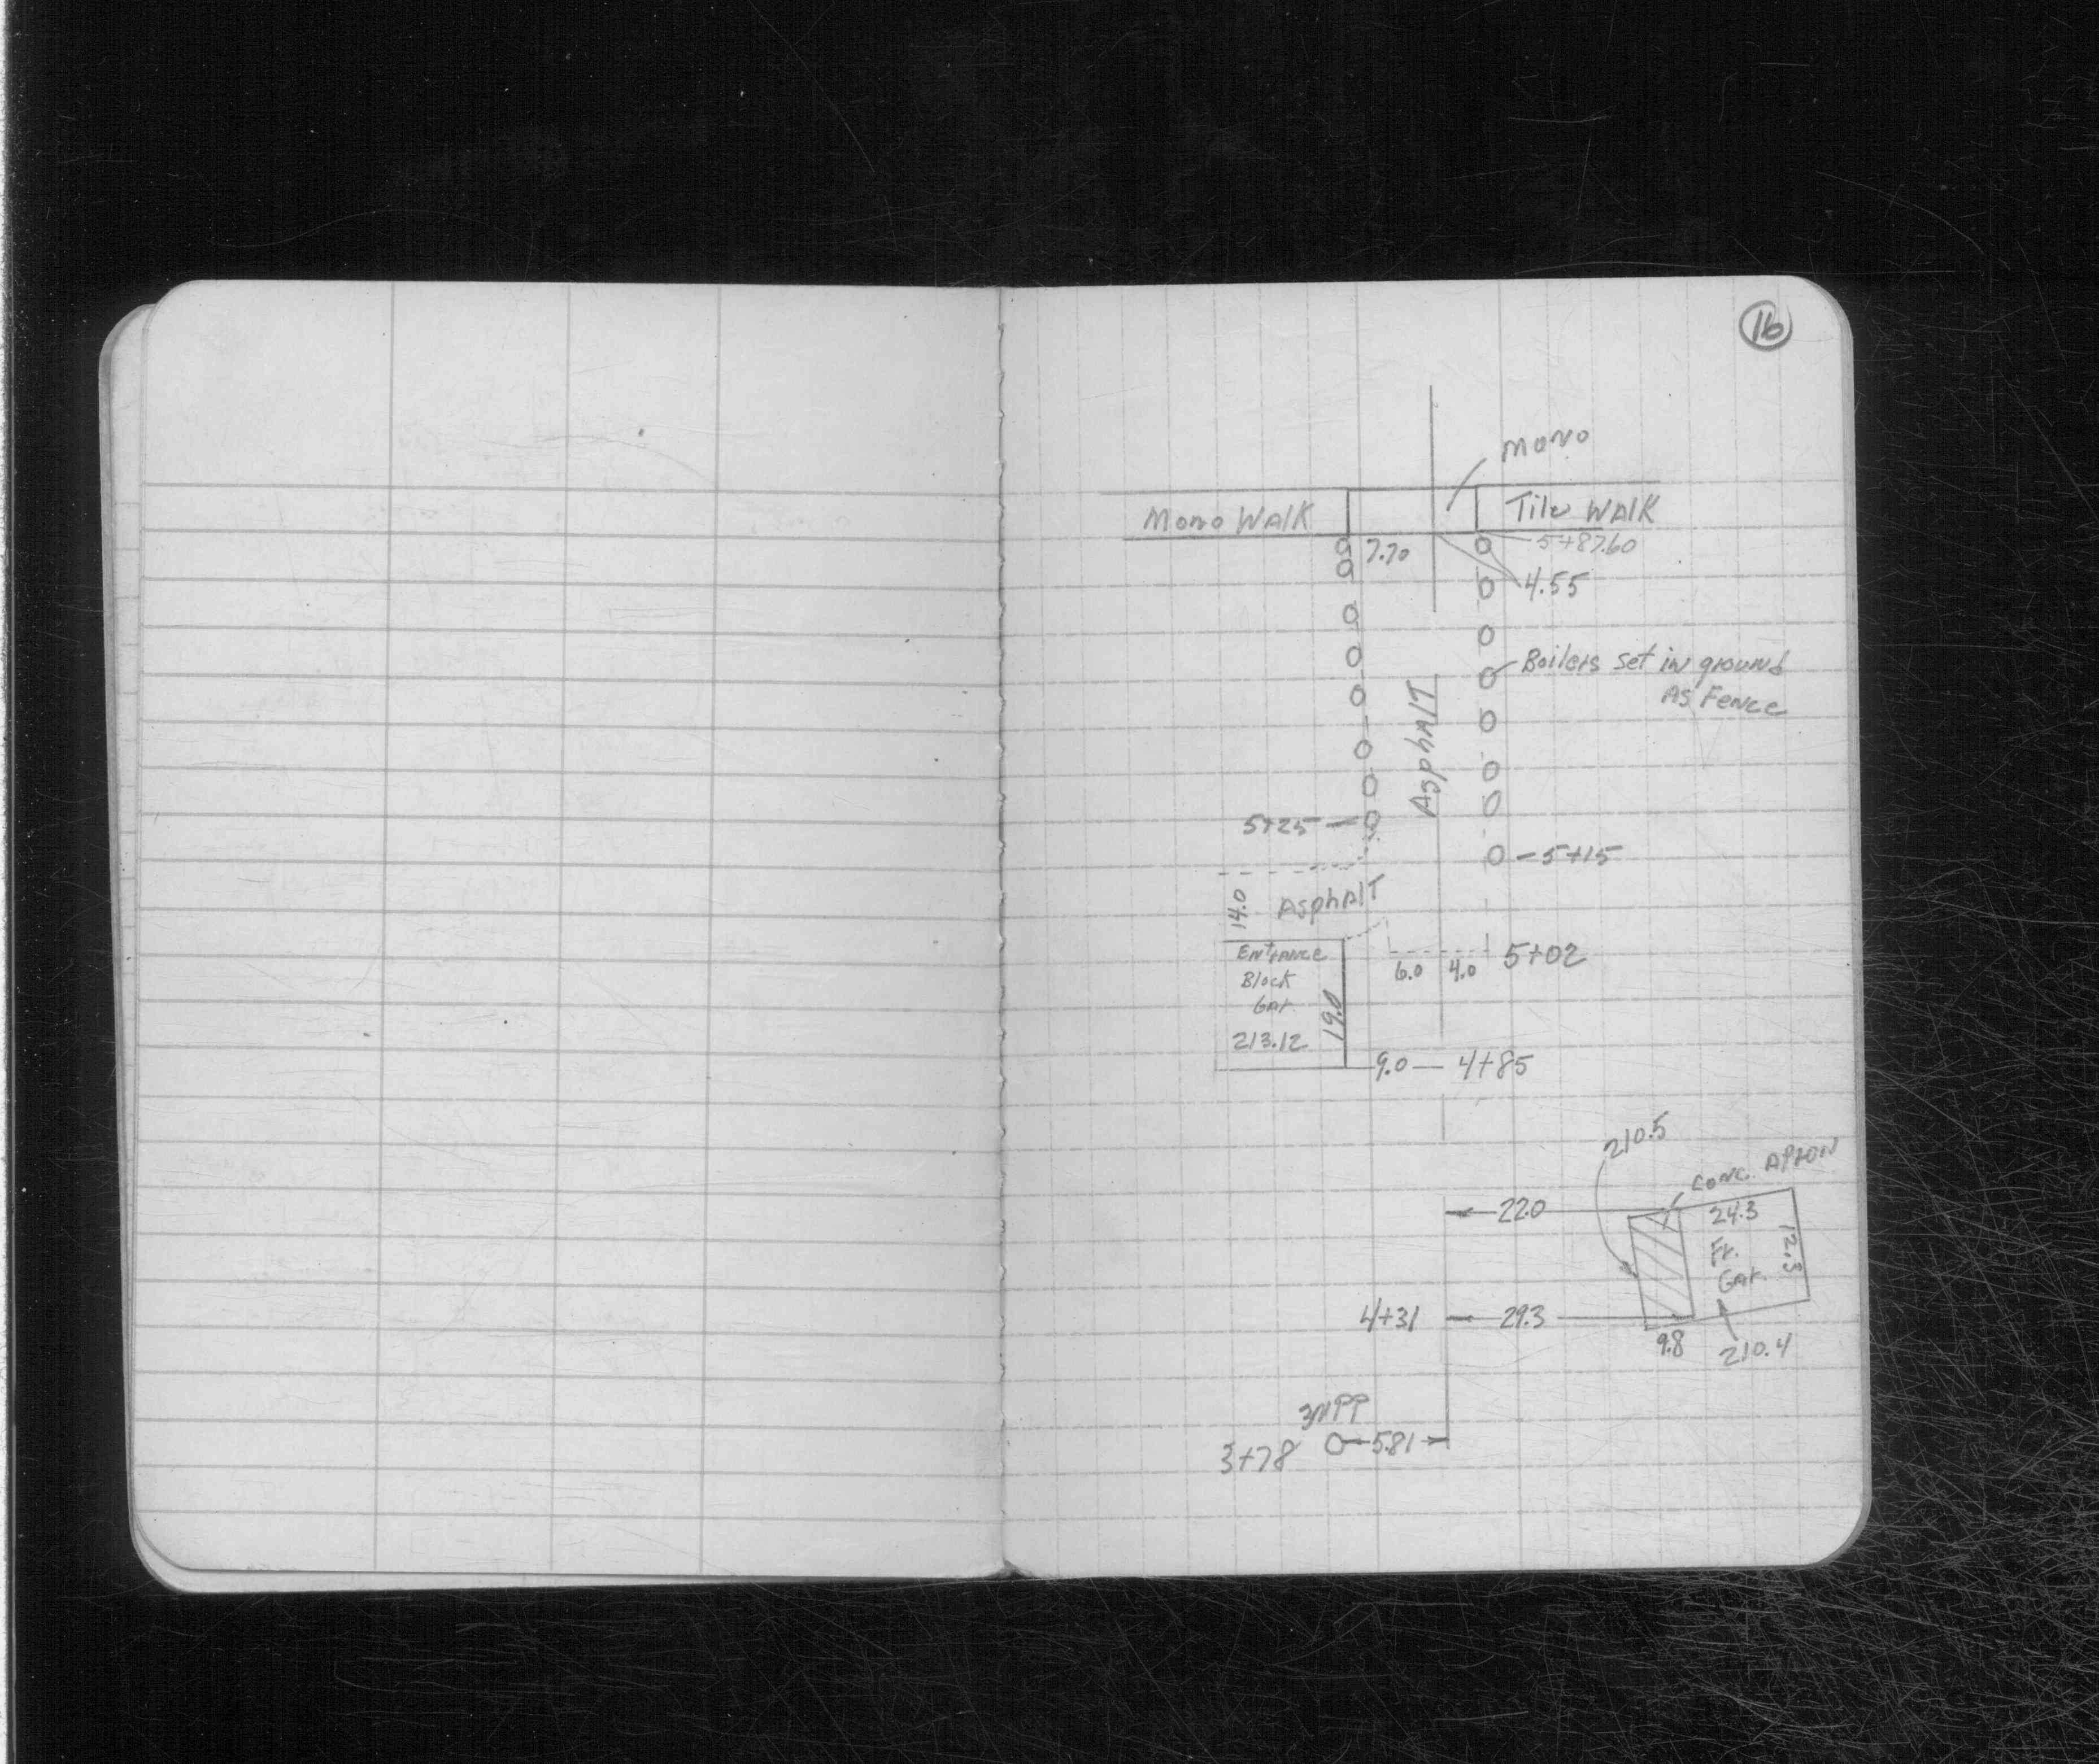 16
Mono
Mono Walk
Tile Walk
7.70
5+87.60
4.55
Boilers set in ground
As Fence
Asphalt
5+25
5+15
14.0
Asphalt
Entrance
Block
Gar.
213.12
19.0
6.0
4.0
5+02
9.0
4+85
210.5
Conc. Apron
22.0
24.3
Fr.
Gar.
12.5
4+31
29.3
9.8
210.4
3MPP
3+78
5.81